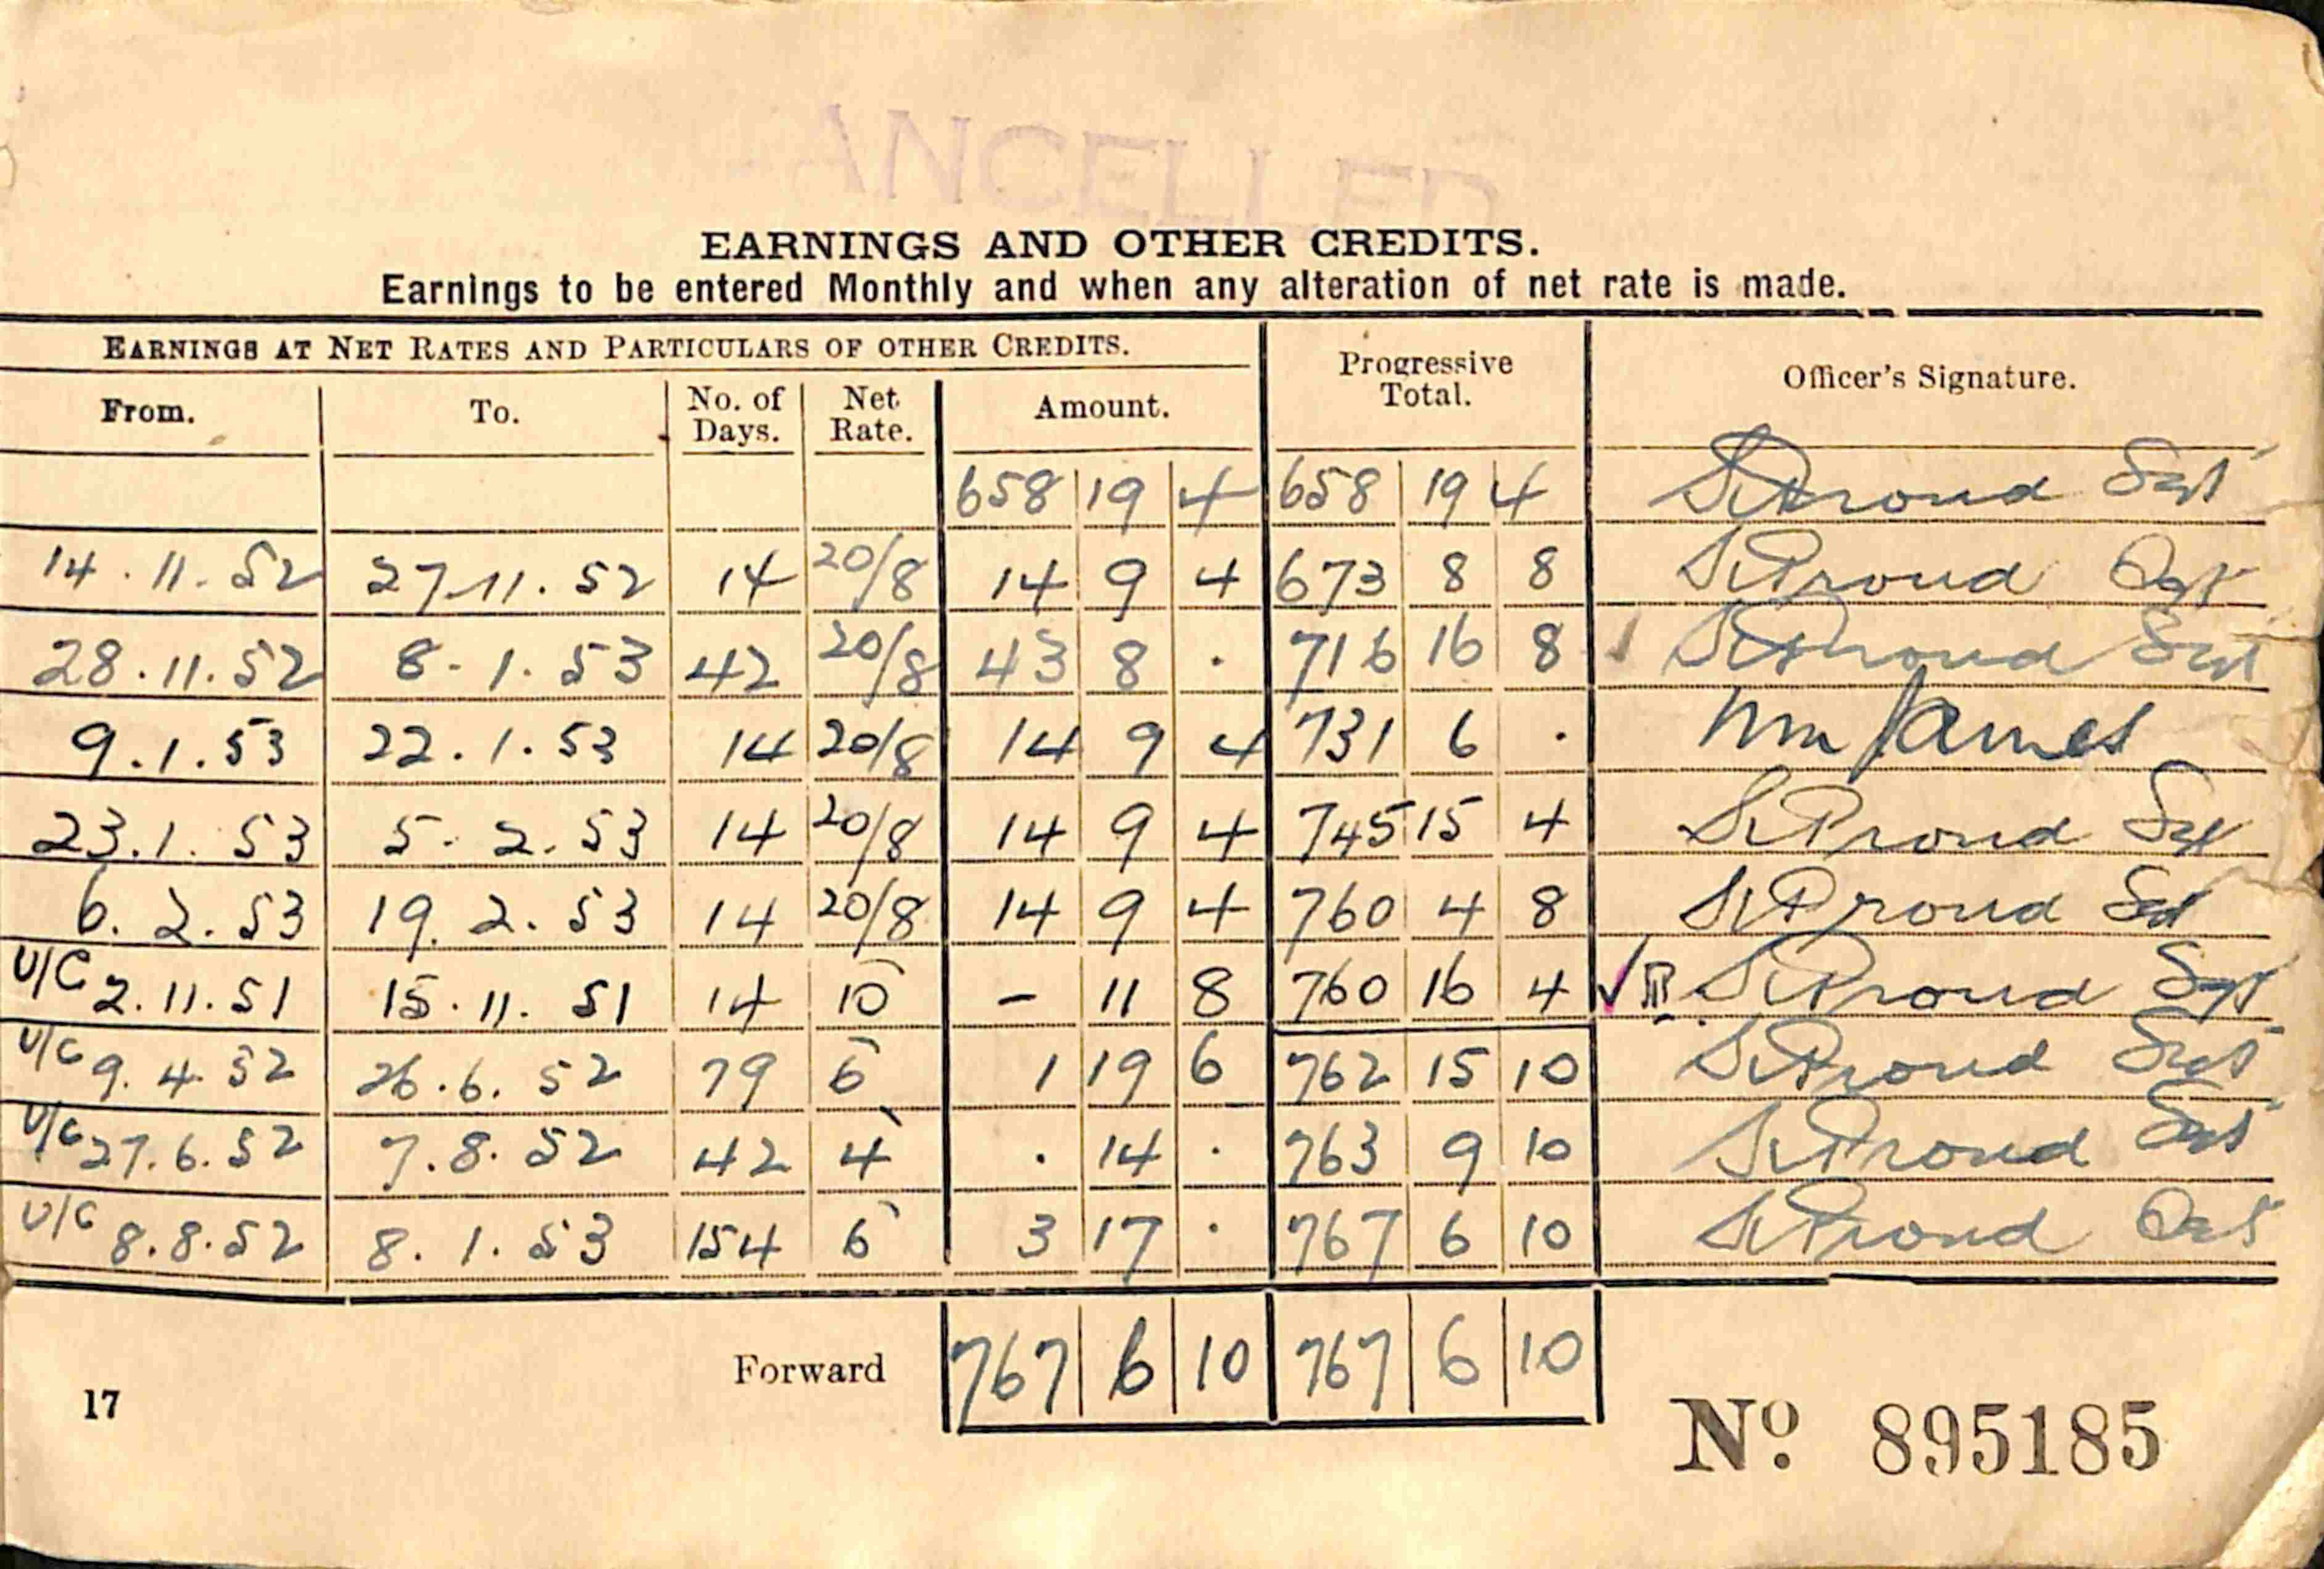 ANCELLED
EARNINGS AND OTHER CREDITS.
Earnings to be entered Monthly and when any alteration of net rate is made.
EARNINGS AT NET RATES AND PARTICULARS OF OTHER CREDITS. Progressive Total. Officer's Signature.
From. To. No. of Days. Net Rate. Amount.
658 19 4 658 19 4 Proud Sgt
14.11.52 27.11.52 14 20/8 14 9 4 673 8 8 Proud
28.11.52 8.1.53 42 20/8 43 8 . 716 16 8 Proud Sgt
9.1.53 22.1.53 14 20/8 14 9 4 731 6 . Wm James
23.1.53 5.2.53 14 20/8 14 9 4 745 15 4 Proud Sgt
6.2.53 19.2.53 14 20/8 14 9 4 760 4 8 Proud Sgt
U/C 2.11.51 15.11.51 14 10 - 11 8 760 16 4 Proud Sgt
U/C 9.4.52 26.6.52 79 6 1 19 6 762 15 10 Proud Sgt
U/C 27.6.52 7.8.52 42 4 . 14 . 763 9 10 Proud Sgt
U/C 8.8.52 8.1.53 154 6 3 17 . 767 6 10 Proud
Forward 767 6 10 767 6 10
17
No. 895185